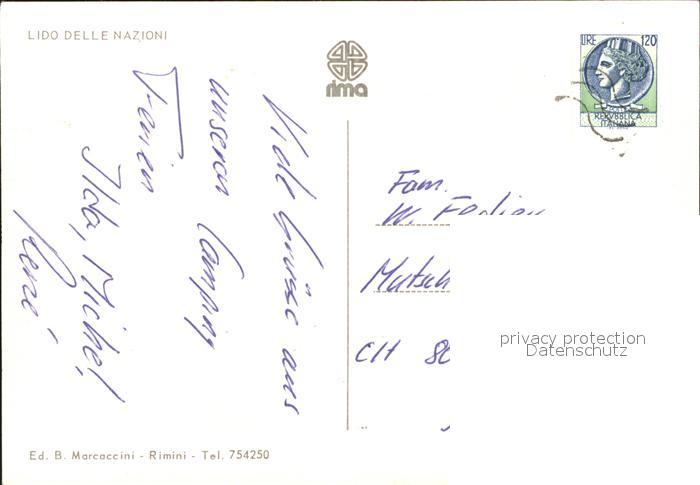 LIDO DELLE NAZIONI
rima
LIRE 120
REPVBBLICA
ITALIANA
Viele Grüsse aus
unseren Camping
Ferien
Ilda, Michel
René
Fam.
W.
Mutsch
CH 80
privacy protection
Datenschutz
Ed. B. Marcaccini - Rimini - Tel. 754250